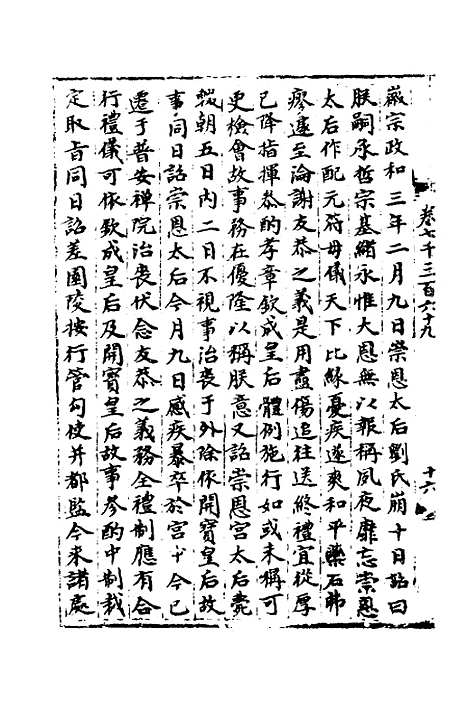 卷七千三百六十九
十六
徽宗政和三年二月九日崇恩太后劉氏崩十日詔曰
朕嗣承哲宗基緒永惟大恩無以報稱夙夜靡忘崇恩
太后作配元符母儀天下比緣憂疾遂爽和平藥石弗
瘳遽至淪謝友恭之義是用盡傷追往送終禮宜從厚
已降指揮恭酌孝章欽成皇后體例施行如或未稱可
更檢會故事務在優隆以稱朕意又詔崇恩宮太后薨
輟朝五日內二日不視事治喪于外除依開寶皇后故
事同日詔崇恩太后今月九日感疾暴卒於宮十今已
遷于普安禪院治喪伏念友恭之義務全禮制應有合
行禮儀可依欽成皇后及開寶皇后故事參酌中制裁
定取旨同日詔差園陵按行管勾使并都監今來諸處